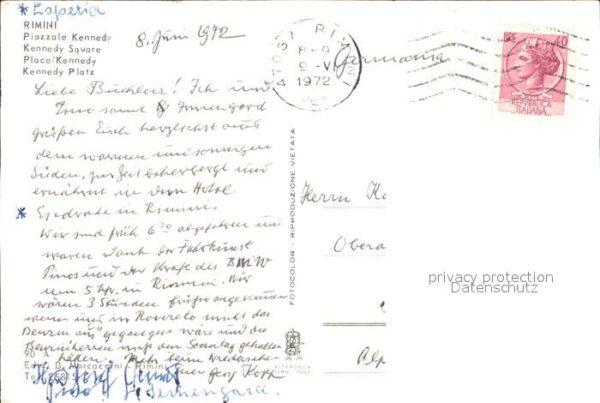 * Esperia
RIMINI
Piazzale Kennedy
Kennedy Square
Place Kennedy
Kennedy Platz
8. Juni 1972
POSTE RIMINI
8-9
9-VI
1972
Germania
40
REPUBBLICA
ITALIANA
Liebe Buchloer! Ich und
samt Irmengard
grüßen Euch herzlichst aus
dem warmen und sonnigen
Süden, zur Zeit beherbergt und
ernährt in dem Hotel
* Esedrade in Rimini.
Wir sind früh 6 30 abgefahren und
waren Dank der Fahrkunst
Pinos und der Kraft des BMW
um 5 Uhr in Rimini. Wir
wären 3 Stunden früher angekommen
wenn uns in Rovereto nicht das
Benzin aus gegangen wäre und die
den Sonntag gehalten
hätten. Mehr beim Wiedersehn
Euer
Herrn
Obera
Alp
FOTOCOLOR - RIPRODUZIONE VIETATA
privacy protection
Datenschutz
90 A
Ediz. B. Marcaccini - Rimini
Tel.
ALTEROCCA
Irmengard